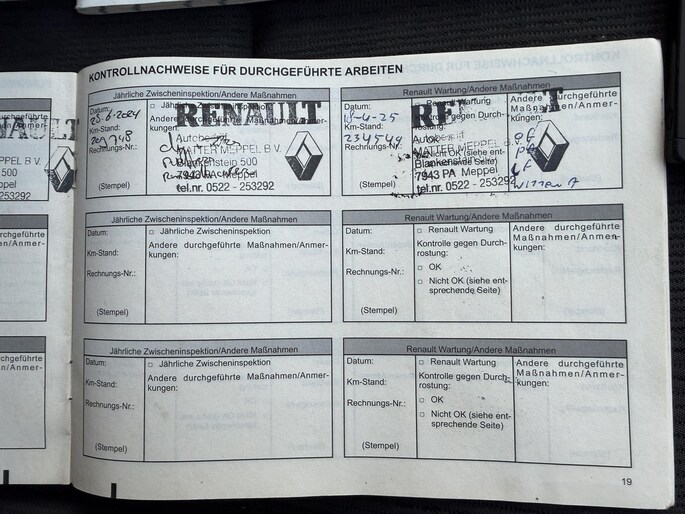 KONTROLLNACHWEISE FÜR DURCHGEFÜHRTE ARBEITEN
Jährliche Zwischeninspektion/Andere Maßnahmen
Datum:
25-6-2024
Km-Stand:
Rechnungs-Nr.:
(Stempel)
RENAULT
MATTER MEPPEL B.V.
Blankenstein 500
7943 PA Meppel
tel.nr. 0522 - 253292
Renault Wartung/Andere Maßnahmen
Datum:
18-4-25
Km-Stand:
234549
Rechnungs-Nr.:
(Stempel)
Renault Wartung
Kontrolle gegen Durch-
rostung:
OK
Nicht OK (siehe ent-
Andere durchgeführte
Maßnahmen/Anmer-
kungen:
MATTER MEPPEL B.V.
Blankenstein
7943 PA Meppel
tel.nr. 0522 - 253292
Jährliche Zwischeninspektion/Andere Maßnahmen
Datum:
Km-Stand:
Rechnungs-Nr.:
(Stempel)
Jährliche Zwischeninspektion
Andere durchgeführte Maßnahmen/Anmer-
kungen:
Renault Wartung/Andere Maßnahmen
Datum:
Km-Stand:
Rechnungs-Nr.:
(Stempel)
Renault Wartung
Kontrolle gegen Durch-
rostung:
OK
Nicht OK (siehe ent-
sprechende Seite)
Andere durchgeführte
Maßnahmen/Anmer-
kungen:
Jährliche Zwischeninspektion/Andere Maßnahmen
Datum:
Km-Stand:
Rechnungs-Nr.:
(Stempel)
Jährliche Zwischeninspektion
Andere durchgeführte Maßnahmen/Anmer-
kungen:
Renault Wartung/Andere Maßnahmen
Datum:
Km-Stand:
Rechnungs-Nr.:
(Stempel)
Renault Wartung
Kontrolle gegen Durch-
rostung:
OK
Nicht OK (siehe ent-
sprechende Seite)
Andere durchgeführte
Maßnahmen/Anmer-
kungen:
19